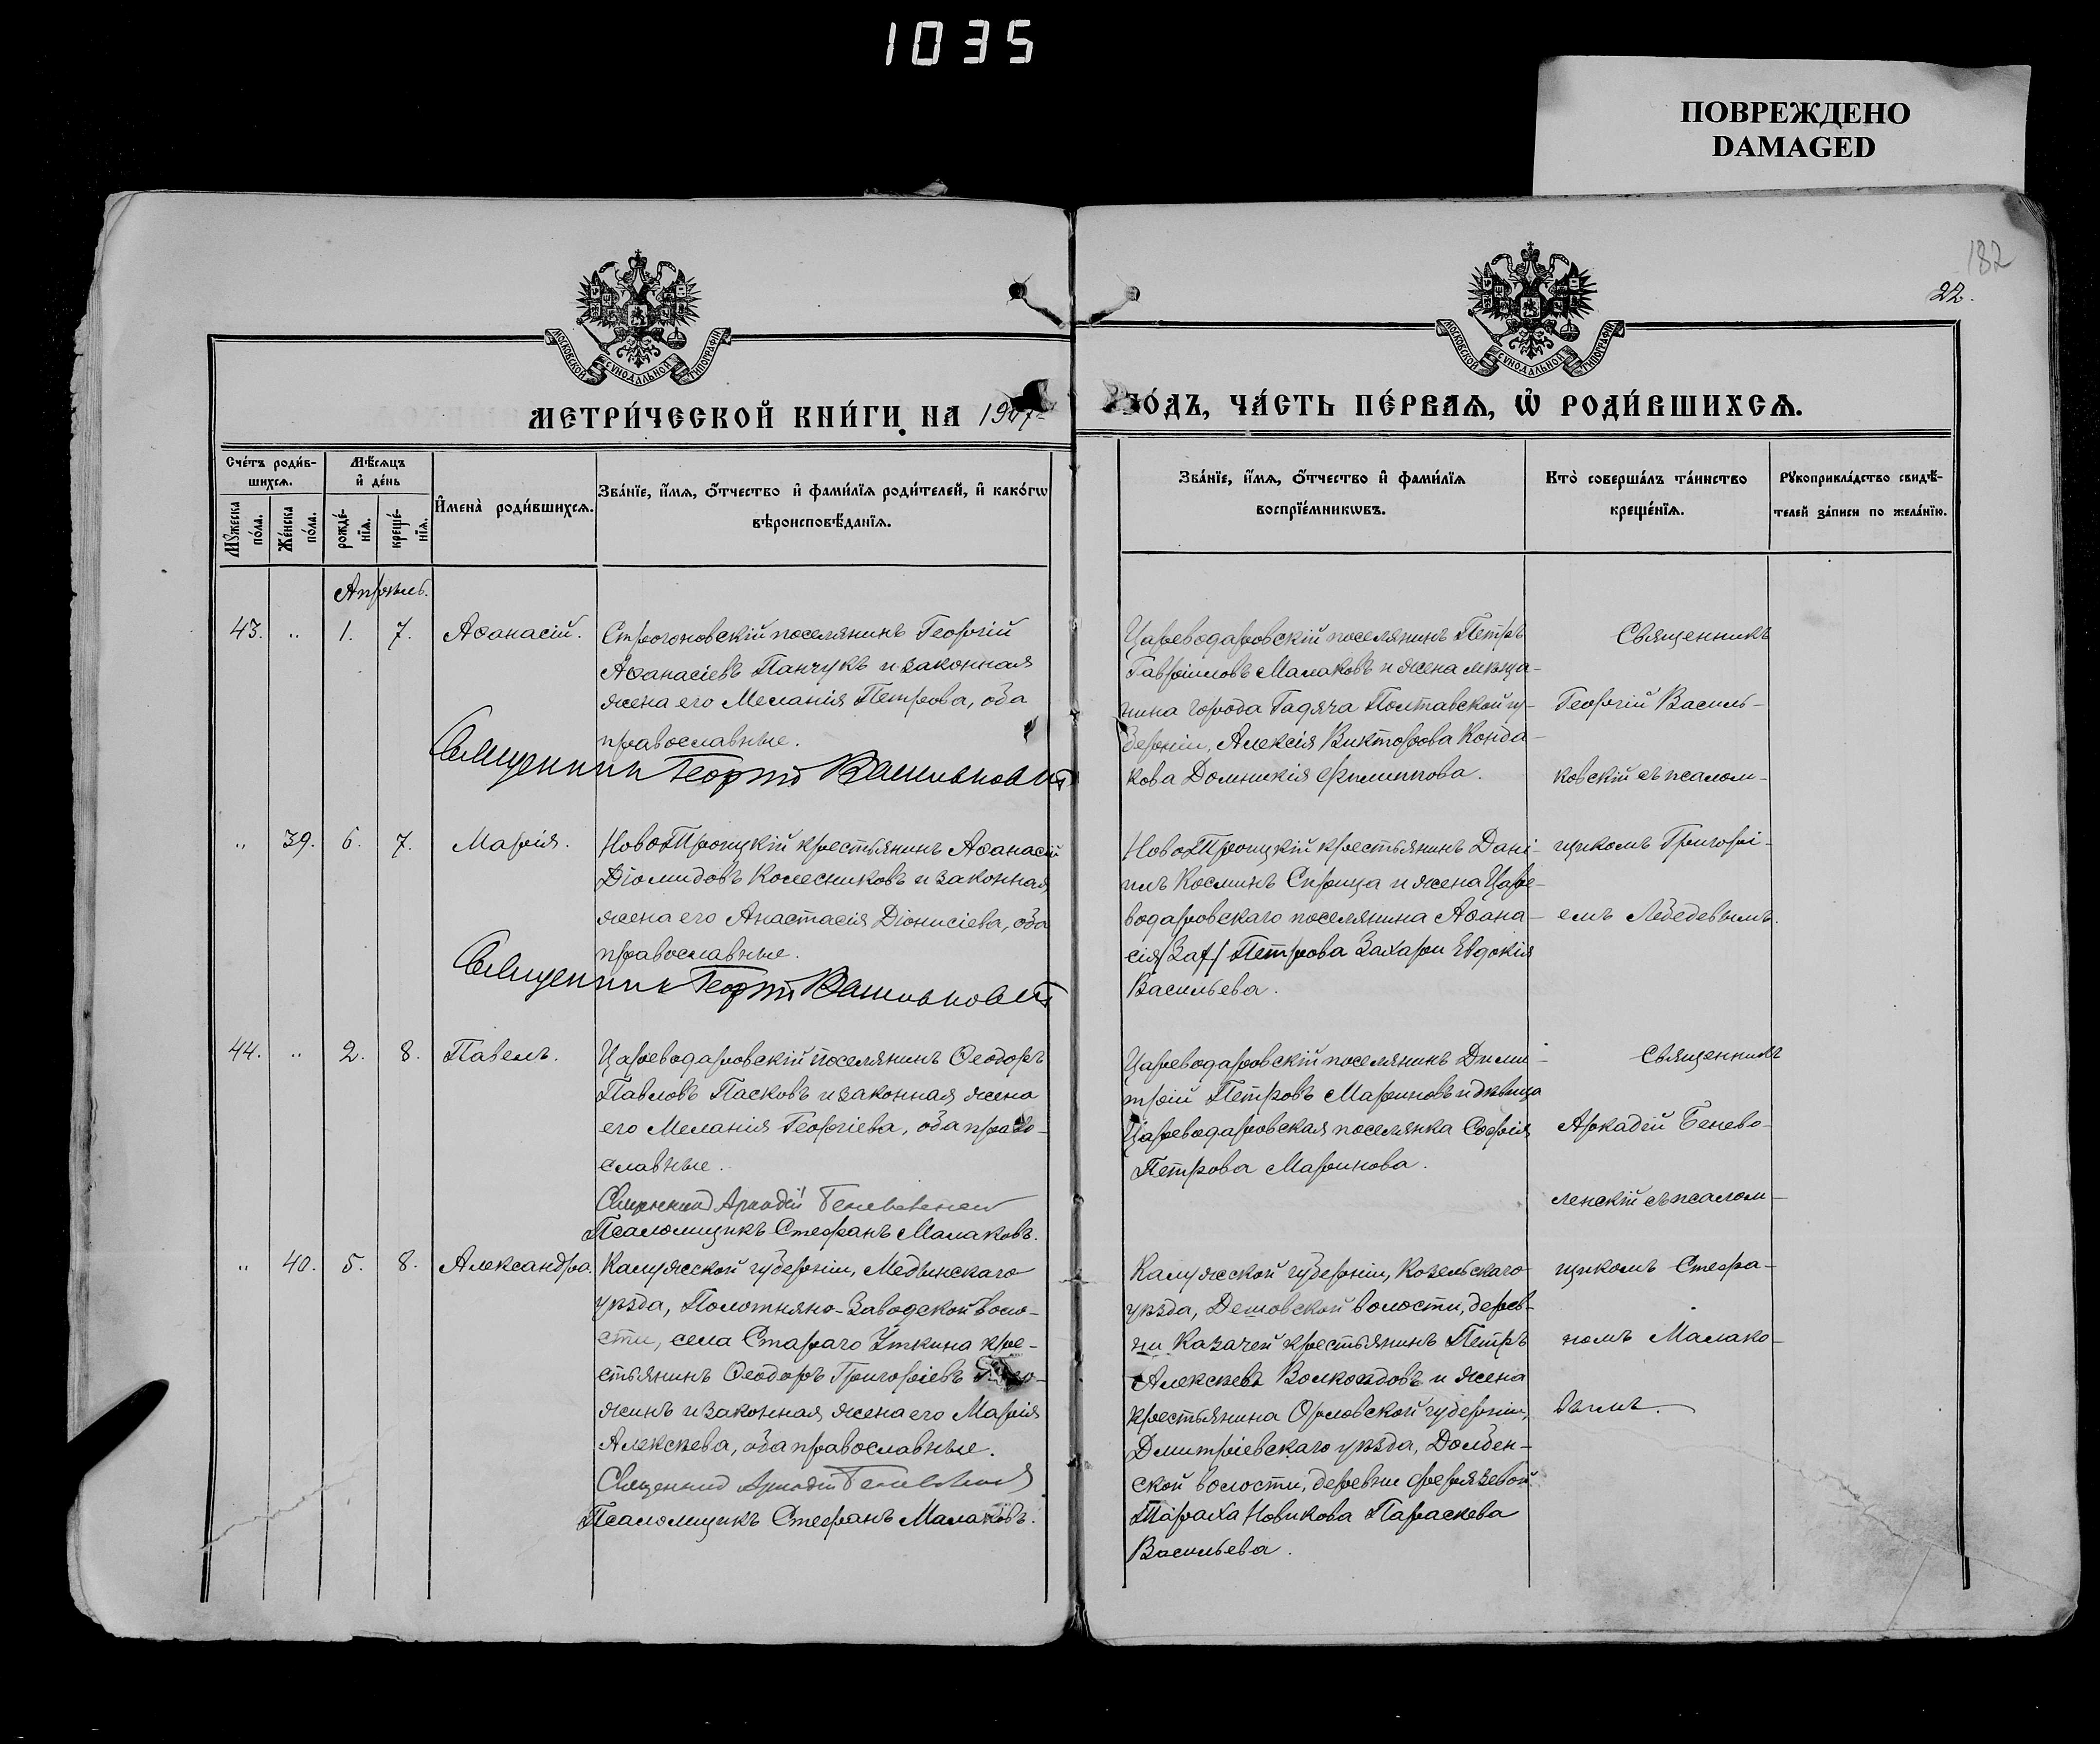 1035
ПОВРЕЖДЕНО
DAMAGED
182
22.
МОСКОВСКОЙ СѴНОДАЛЬНОЙ ТИПОГРАФІИ
МОСКОВСКОЙ СѴНОДАЛЬНОЙ ТИПОГРАФІИ
МЕТРИ́ЧЕСКОЙ КНИ́ГИ НА 1907
ГО́ДЪ, ЧА́СТЬ ПЕ́РВАѦ, Ѡ҆ РОДИ́ВШИХСѦ.
Сче́тъ роди́в-
шихсѧ.
Мꙋ́жеска по́ла.
Же́нска по́ла.
Мѣ́сѧцъ
и҆ де́нь
рожде́-нїѧ.
креще́-нїѧ.
И҆мена̀ роди́вшихсѧ.
Зва́нїе, и҆́мѧ, ѻ҆́тчество и҆ фами́лїѧ роди́телей, и҆ како́гѡ
вѣроисповѣ́данїѧ.
Зва́нїе, и҆́мѧ, ѻ҆́тчество и҆ фами́лїѧ
воспрїе́мникѡвъ.
Кто̀ соверша́лъ та́инство
креще́нїѧ.
Рꙋкоприкла́дство свидѣ́-
телей за́писи по жела́нїю.
Апрѣль.
43. " 1. 7. Аѳанасій.
Строгоновскій поселянинъ Георгій
Аѳанасіевъ Панчукъ и законная
жена его Меланія Петрова, оба
православные.
Священник Георгий Васильковский
Цареводаровскій поселянинъ Петръ
Гавріиловъ Малаковъ и жена мѣща-
нина города Гадяча Полтавской гу-
берніи, Алексія Викторова Конда-
кова Домникія Филиппова.
" 39. 6. 7. Марія.
НовоТроицкій крестьянинъ Аѳанасій
Діомидовъ Колесниковъ и законная
жена его Анастасія Діонисіева, оба
православные.
Священник Георгий Васильковский
НовоТроицкій крестьянинъ Дані-
илъ Косминъ Сприца и жена Царе-
водаровскаго поселянина Аѳана-
сія /Зах/ Петрова Захари Евдокія
Васильева.
Священникъ
Георгій Василь-
ковскій съ псалом-
щикомъ Григорі-
емъ Лебедевымъ.
44. " 2. 8. Павелъ.
Цареводаровскій поселянинъ Ѳеодоръ
Павловъ Пасковъ и законная жена
его Меланія Георгіева, оба право-
славные.
Священник Аркадій Беневоленский
Псаломщикъ Стефанъ Малаковъ.
Цареводаровскій поселянинъ Дими-
трій Петровъ Мариновъ и дѣвица
Цареводаровская поселянка Софія
Петрова Маринова.
" 40. 5. 8. Александра.
Калужской губерніи, Медынскаго
уѣзда, Полотняно-Заводской воло-
сти, села Стараго Уткина кре-
стьянинъ Ѳеодоръ Григоріевъ
жинъ и законная жена его Марія
Алексѣева, оба православные.
Священник Аркадій Беневоленский
Псаломщикъ Стефанъ Малаковъ.
Калужской губерніи, Козельскаго
уѣзда, Дешовской волости, дерев-
ни Казачей крестьянинъ Петръ
Алексѣевъ Волкондовъ и жена
крестьянина Орловской губерніи,
Дмитріевскаго уѣзда, Долбен-
ской волости, деревни Ферязевой
Тараха Новикова Параскева
Васильева.
Священникъ
Аркадій Бенево-
ленскій съ псалом-
щикомъ Стефа-
номъ Малако-
вымъ.